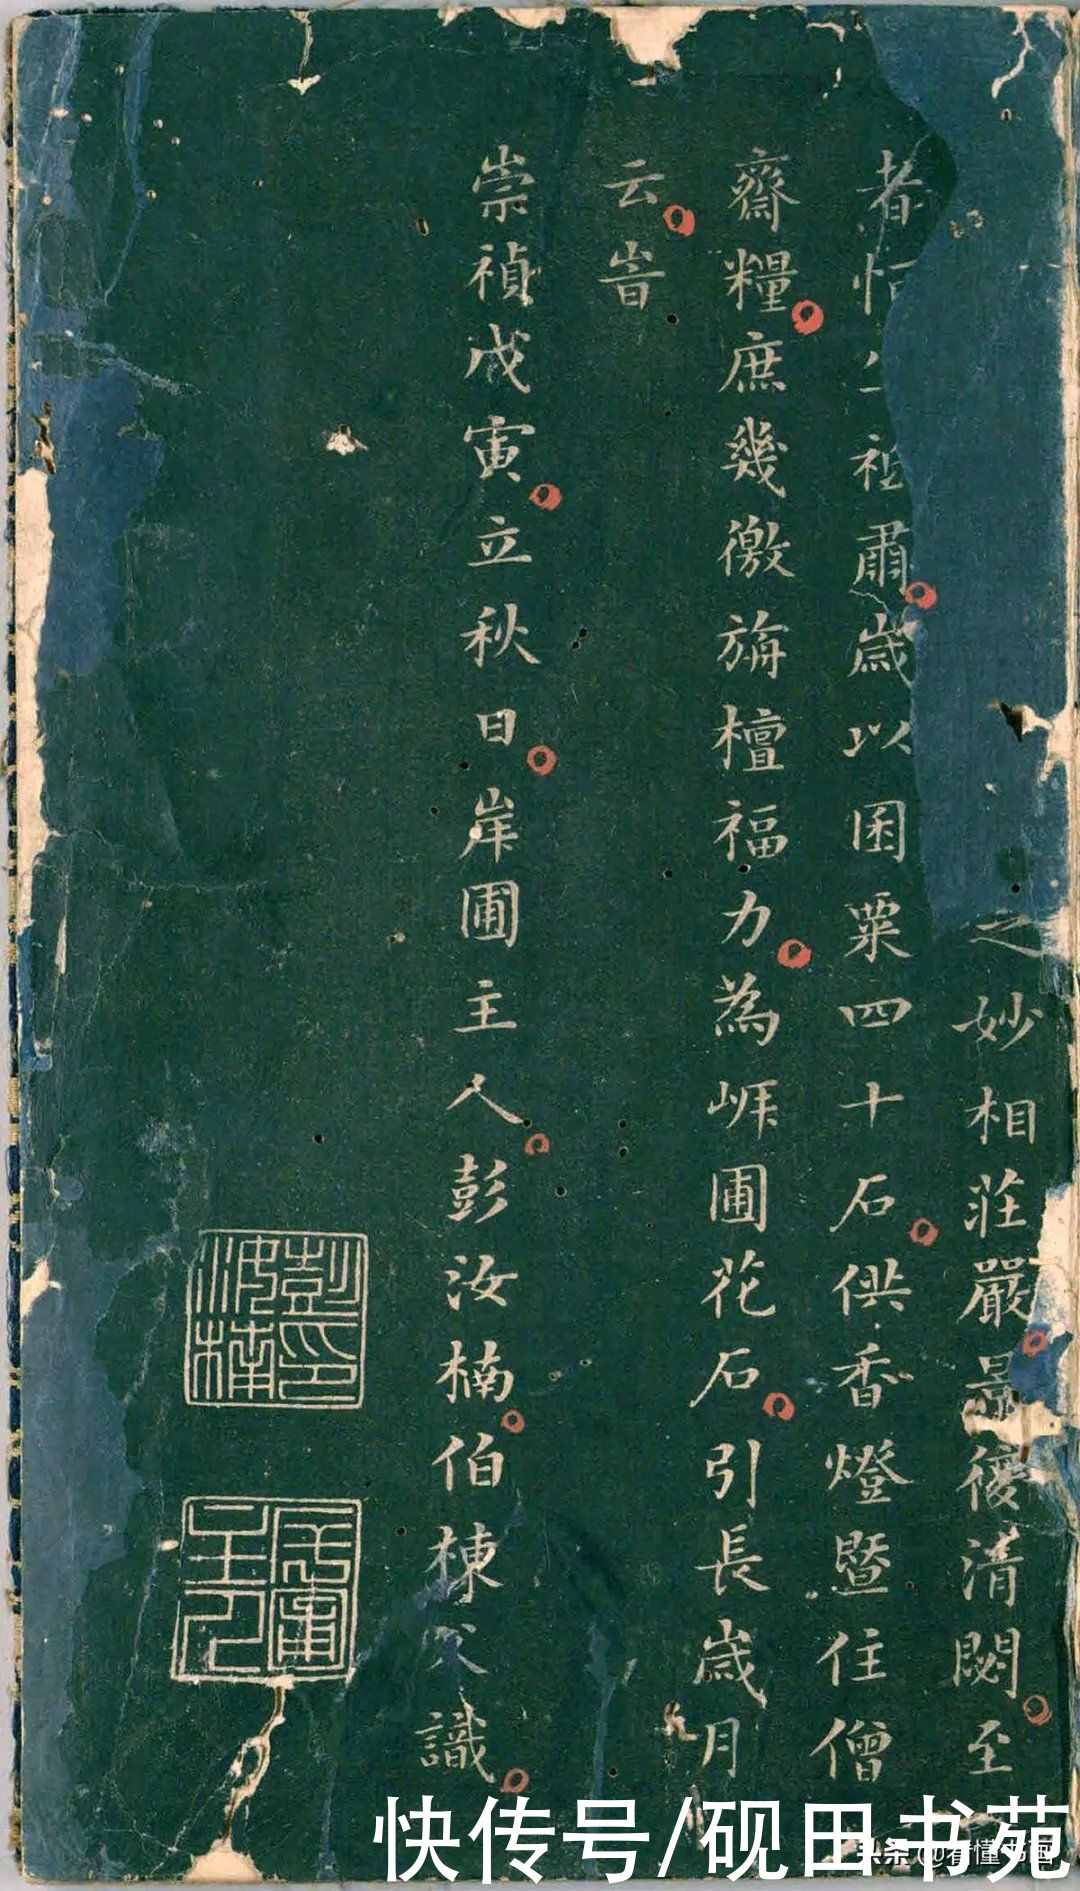 之妙相莊嚴景復清閟至
者恒祗肅歲以囷粟四十石供香燈暨住僧
齋糧庶幾徼旃檀福力為岸圃花石引長歲月
云旹
崇禎戊寅立秋日岸圃主人彭汝楠伯棟父識
彭印汝楠
岸圃主人
快传号/砚田书苑
头条@看懂书画